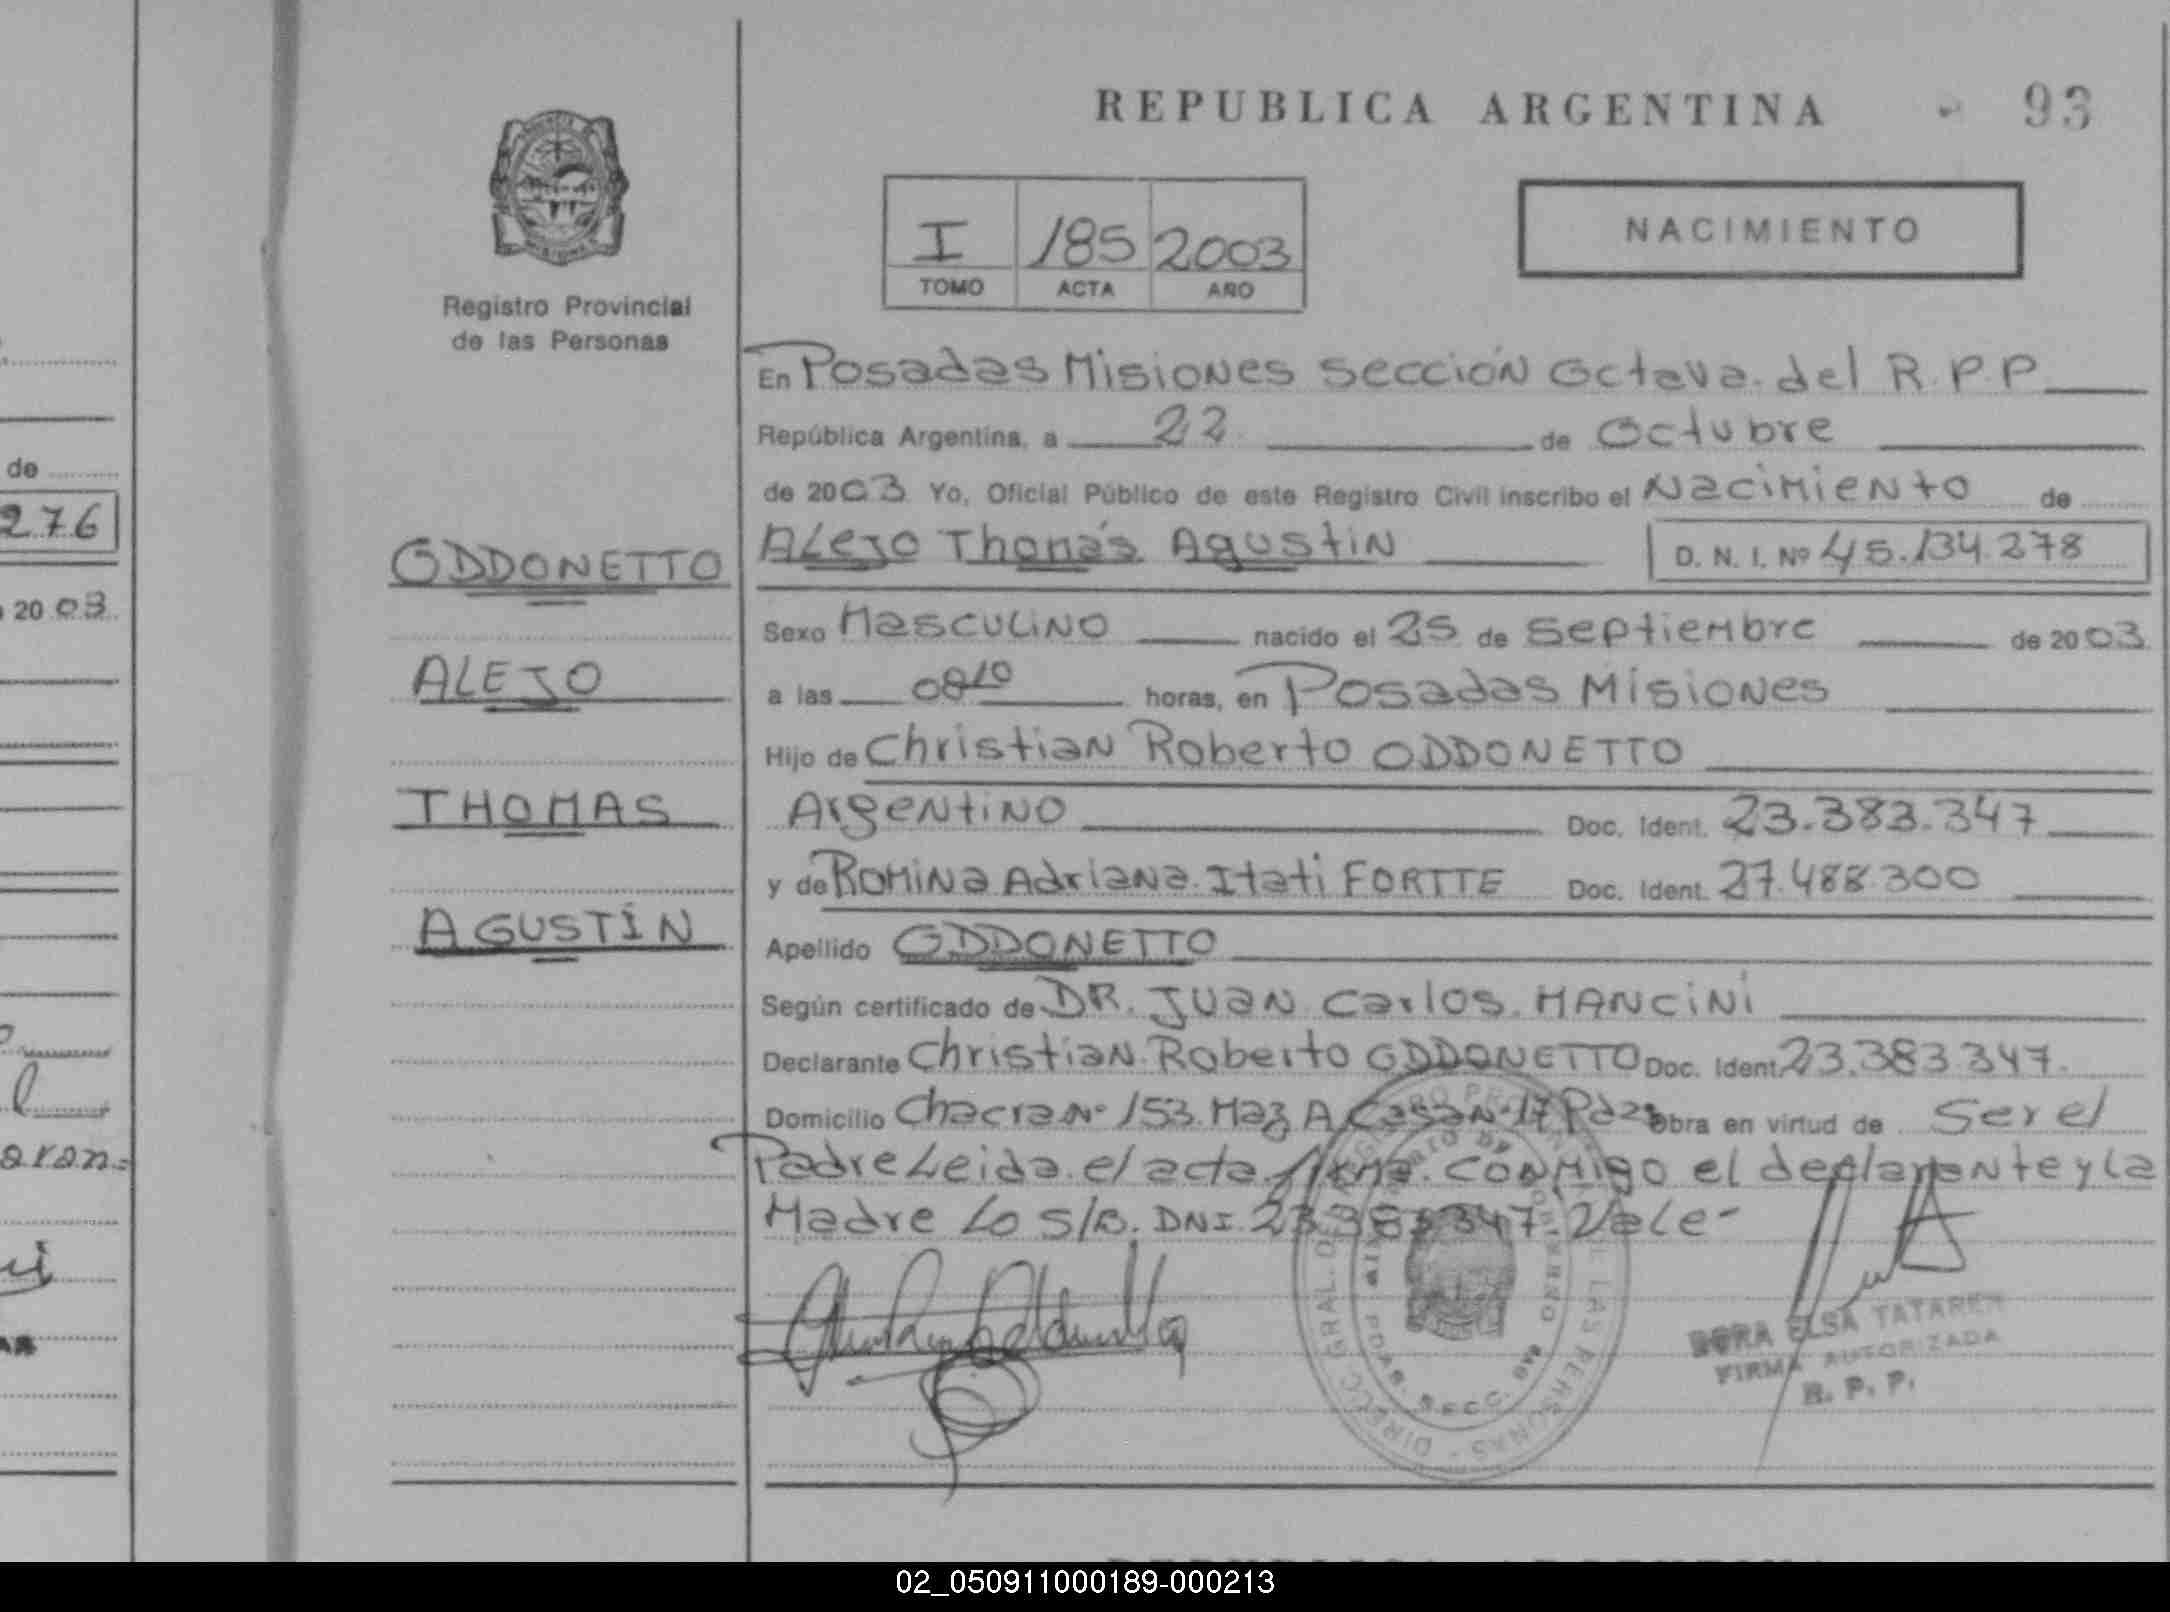 REPUBLICA ARGENTINA
93
I 185 2003
TOMO ACTA AÑO
NACIMIENTO
Registro Provincial
de las Personas
En Posadas Misiones sección Octava del R.P.P
República Argentina, a 22 de Octubre
de 2003 Yo, Oficial Público de este Registro Civil inscribo el Nacimiento de
Alejo Thomás Agustin D. N. I. Nº 45.134.278
Sexo Masculino nacido el 25 de septiembre de 2003
a las 0810 horas, en Posadas Misiones
Hijo de Christian Roberto ODDONETTO
Argentino Doc. Ident. 23.383.347
y de Romina Adriana Itati FORTTE Doc. Ident. 27.488.300
Apellido ODDONETTO
Según certificado de DR. Juan Carlos MANCiNi
Declarante Christian Roberto ODDONETTO Doc. Ident. 23.383.347.
Domicilio Chacra Nº 153 Maz A Casa Nº 17 Pdas obra en virtud de Ser el
Padre Leida el acta firma conmigo el declarante y la
Madre Lo S/B. DNI 23.383.347 Vale-
ODDONETTO
ALEJO
THOMAS
AGUSTÍN
DORA ELSA TATAREN
FIRMA AUTORIZADA
R. P. P.
de
276
20 03
02_050911000189-000213